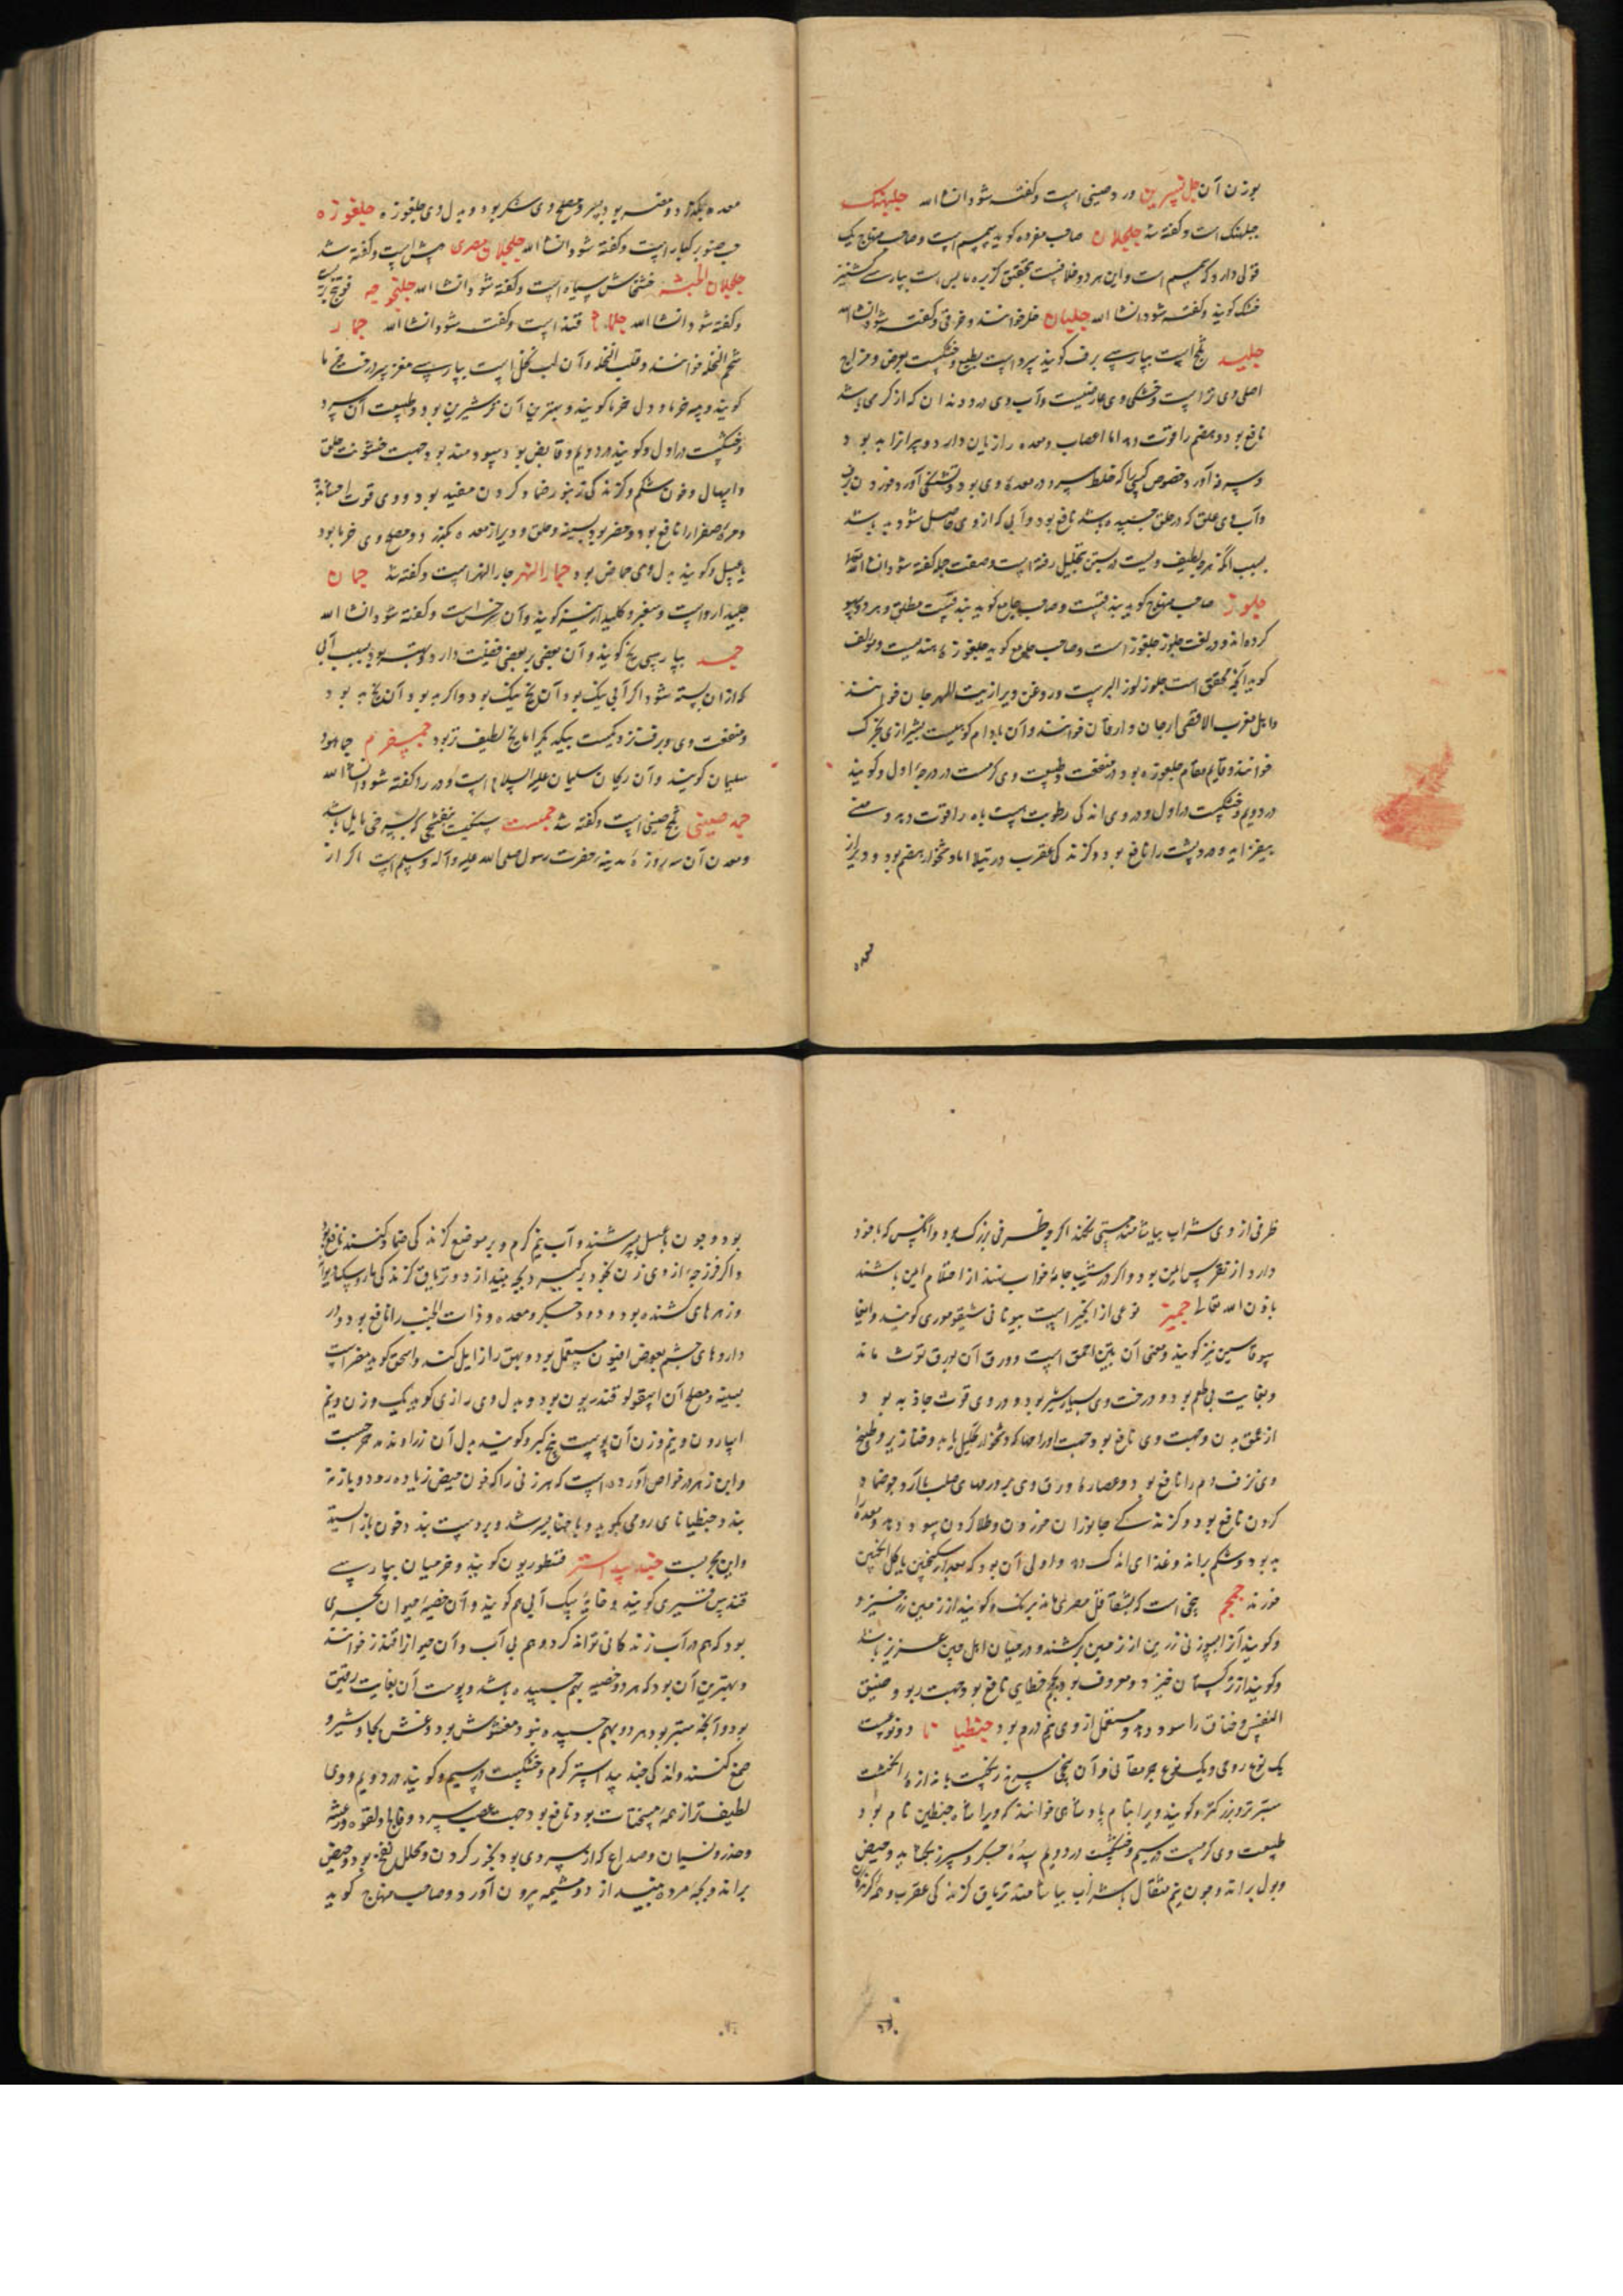 بوزن آن جل نسرین ورد صینی است و گفته شود انشا الله جلبهنک
جبلهنک است و گفته شد جلجلان صاحب مفرده گوید سمسم است و صاحب منهاج یک
قول دارد که سمسم است و این هر دو خلافست بتحقیق کزبره یابس است بپارسی کشنیز
خشک گویند و گفته شود انشا الله جلبان خلر خوانند و خرفی و گفته شود انشا الله
جلید ثلج است بپارسی برف گویند سرد است بطبع و خشکست بعرض و مزاج
اصلی وی تر است و خشکی وی عارضیست و آب وی درد دندان که از گرمی باشد
نافع بود و هضم را قوت دهد اما اعصاب و معده را زیان دارد و پیرانرا بد بود
و سرفه آورد خصوص کسی را که خلط سرد در معده وی بود و تشنگی آورد و خوردن برف
و آب وی علق که در حلق چسبیده باشد نافع بود و آبی که از وی حاصل شود بد باشد
بسبب آنکه هرچه لطیف ویست در بستن بتحلیل رفته است و صفت جلد گفته شود انشا الله تعالی
جلوز صاحب منهاج گوید بندقست و صاحب جامع گوید بندقست مطلق و هر دو سهو
کرده‌اند و در لغت جلوز جلغوز است و صاحب جامع گوید جلغوزه هندیست و مولف
گوید آنچه محقق است جلوز لوز البربست و روغن ویرا زیت الهرجان خوانند
و اهل مغرب الاقصی ارجان و ارقان خوانند و آن بادام کوهیست بشیرازی بخرک
خوانند و قایم مقام جلغوزه بود در منفعت و طبیعت وی گرمست در درجه اول و گویند
در دویم و خشکست در اول و در وی اندکی رطوبت هست باه را قوت دهد و منی
بیفزاید و درد پشت را نافع بود و گزندگی عقرب و رتیلا اما دشخوار هضم بود و دیر از
معده
معده بگذرد و مضر بود بسر و مصلح وی شکر بود و بدل وی جلغوزه جلغوزه
حب صنوبر کبار است و گفته شود انشا الله جلجلان مصری بش است و گفته شد
جلجلان الحبشه خشخاش سیاه است و گفته شود انشا الله جلنجوجه فوتنج بریست
و گفته شود انشا الله قند است و گفته شود انشا الله جمار
شحم النخله خوانند و قلب النخله و آن لب نخل است بپارسی مغز سر درخت خرما
گویند و پیه خرما و دل خرما گویند و بهترین آن تر شیرین بود و طبیعت آن سرد
و خشکست در اول و گویند در دویم و قابض بود و سودمند بود جهت خشونت حلق
و اسهال و خون شکم و گزندگی زنبور ضماد کردن مفید بود و وی قوت احشا بدهد
و مره صفرا را نافع بود و مضر بود بسینه و حلق و دیر از معده بگذرد و مصلح وی خرما بود
یا عسل و گویند بدل وی حماض بود جمار النهر جار النهر است و گفته شد جمان
جلیدارو است و سفیر و کلید ارینه گویند و آن سرخس است و گفته شود انشا الله
جمد بپارسی یخ گویند و آن بعضی بر بعضی فضیلت دارد و سرد بود بسبب آبی
که از آن بسته شود اگر آبی نیک بود آن یخ نیک بود و اگر بد بود آن یخ بد بود
و منفعت وی و برف نزدیکست بیکدیگر اما یخ لطیف‌تر بود جمسفرم جماهود
سلیمان گویند و آن ریحان سلیمان علیه السلام است و در را گفته شود انشا الله
جمد صینی ثلج صینی است و گفته شد جمست سنگیست بنفشجی که بسرخی مایل باشد
و معدن آن سه روزه مدینه حضرت رسول صلی الله علیه و آله و سلم است اگر از
ظرفی از وی شراب بیاشامند مستی نکند اگرچه ظرفی بزرگ بود و آنکس که با خود
دارد از نقرس ایمن بود و اگر در شیب جامه خواب بنهند از احتلام ایمن باشند
باذن الله تعالی جمیز نوعی از انجیر است بیونانی شیقوموری گویند و ایضا
سوقاسین نیز گویند و معنی آن تین احمق است و ورق آن بورق توث ماند
و بغایت بی طعم بود و درخت وی بسیار شیر بود و در وی قوت جاذبه بود
از عمق بدن و جهت وی نافع بود جهت اورامها که دشخوار بتحلیل یابد و خنازیر و طبیخ
وی نزف دم را نافع بود و عصاره ورق وی بر ورمهای صلب با آرد جو ضماد
کردن نافع بود و گزندگی جانوران خوردن و طلا کردن سود دهد و معده را
بد بود و شکم براند و غذای اندک دهد و اولی آن بود که بعد از آن سکنجبین یا گل انگبین
خورند جمجم بیخی است که بشقاقل مصری ماند بزنگ و گویند از زمین زر خیزد
و گویند آنرا بسوزنی زرین از زمین برکشند و در میان اهل چین عزیز باشد
و گویند از ترکستان خیزد و معروف بود بجمجم خطایی نافع بود جهت ربو و ضیق
النفس و خناق را سود دهد و مستعمل از وی نیم درم بود جنطیانا دو نوعست
یک نوع رومی و یک نوع جرمقانی و آن بیخی سرخ رنگست باندازه انگشت
سبزتر و بزرگتر و گویند ویرا بنام پادشاهی خوانند که ویرا شاه جنطین نام بود
طبیعت وی گرمست در سیم و خشکست در دویم سده جگر و سپرز بگشاید و حیض
و بول براند و چون نیم مثقال با شراب بیاشامند تریاق گزندگی عقرب و همه گزندها
بود و چون بعسل بسرشند و آب نیم گرم و بر موضع گزندگی ضماد کنند نافع بود
و اگر فرزجه از وی زن بخود برگیرد بچه بیندازد و تریاق گزندگی مار و سگ دیوانه
و زهرهای کشنده بود و درد جگر و معده و ذات الجنب را نافع بود و در
داروهای چشم بعوض افیون مستعمل بود و بهق را زایل کند و اسحق گوید مضر است
بسینه و مصلح آن اسقولوقندریون بود و بدل وی رازی گوید یک وزن و نیم
اسارون و نیم وزن آن پوست بیخ کبر و گویند بدل آن زراوند مدحرجست
و ابن زهر در خواص آورده است که هر زنی را که خون حیض زیاده رود و باز نه
بند و جنطیانای رومی بکوبد و با حنا بسرشد و بر دست بندد خون باز ایستد
و این مجربست جندبیدستر قسطوریون گویند و خزمیان بپارسی
قندس قنسیری گویند و خایه سگ آبی هم گویند و آن خصیه حیوان بحری
بود که هم در آب زندگانی تواند کرد و هم بی آب و آن حیوانرا قندز خوانند
و بهترین آن بود که هر دو خصیه بهم چسبیده باشد و پوست آن بغایت رقیق
بود و آنچه ستبر بود هر دو بهم چسبیده نبود مغشوش بود و غش بجاوشیر و
صمغ کنند و اندکی جندبیدستر گرم و خشکست در سیم و گویند در دویم و وی
لطیفتر از همه مسخنات بود و نافع بود جهت عصب سرد و فالج و لقوه و رعشه
و خدر و نسیان و صداع که از سردی بود بخور کردن و محلل نفخ بود و حیض
براند و بچه مرده بیندازد و مشیمه بیرون آورد و صاحب منهاج گوید